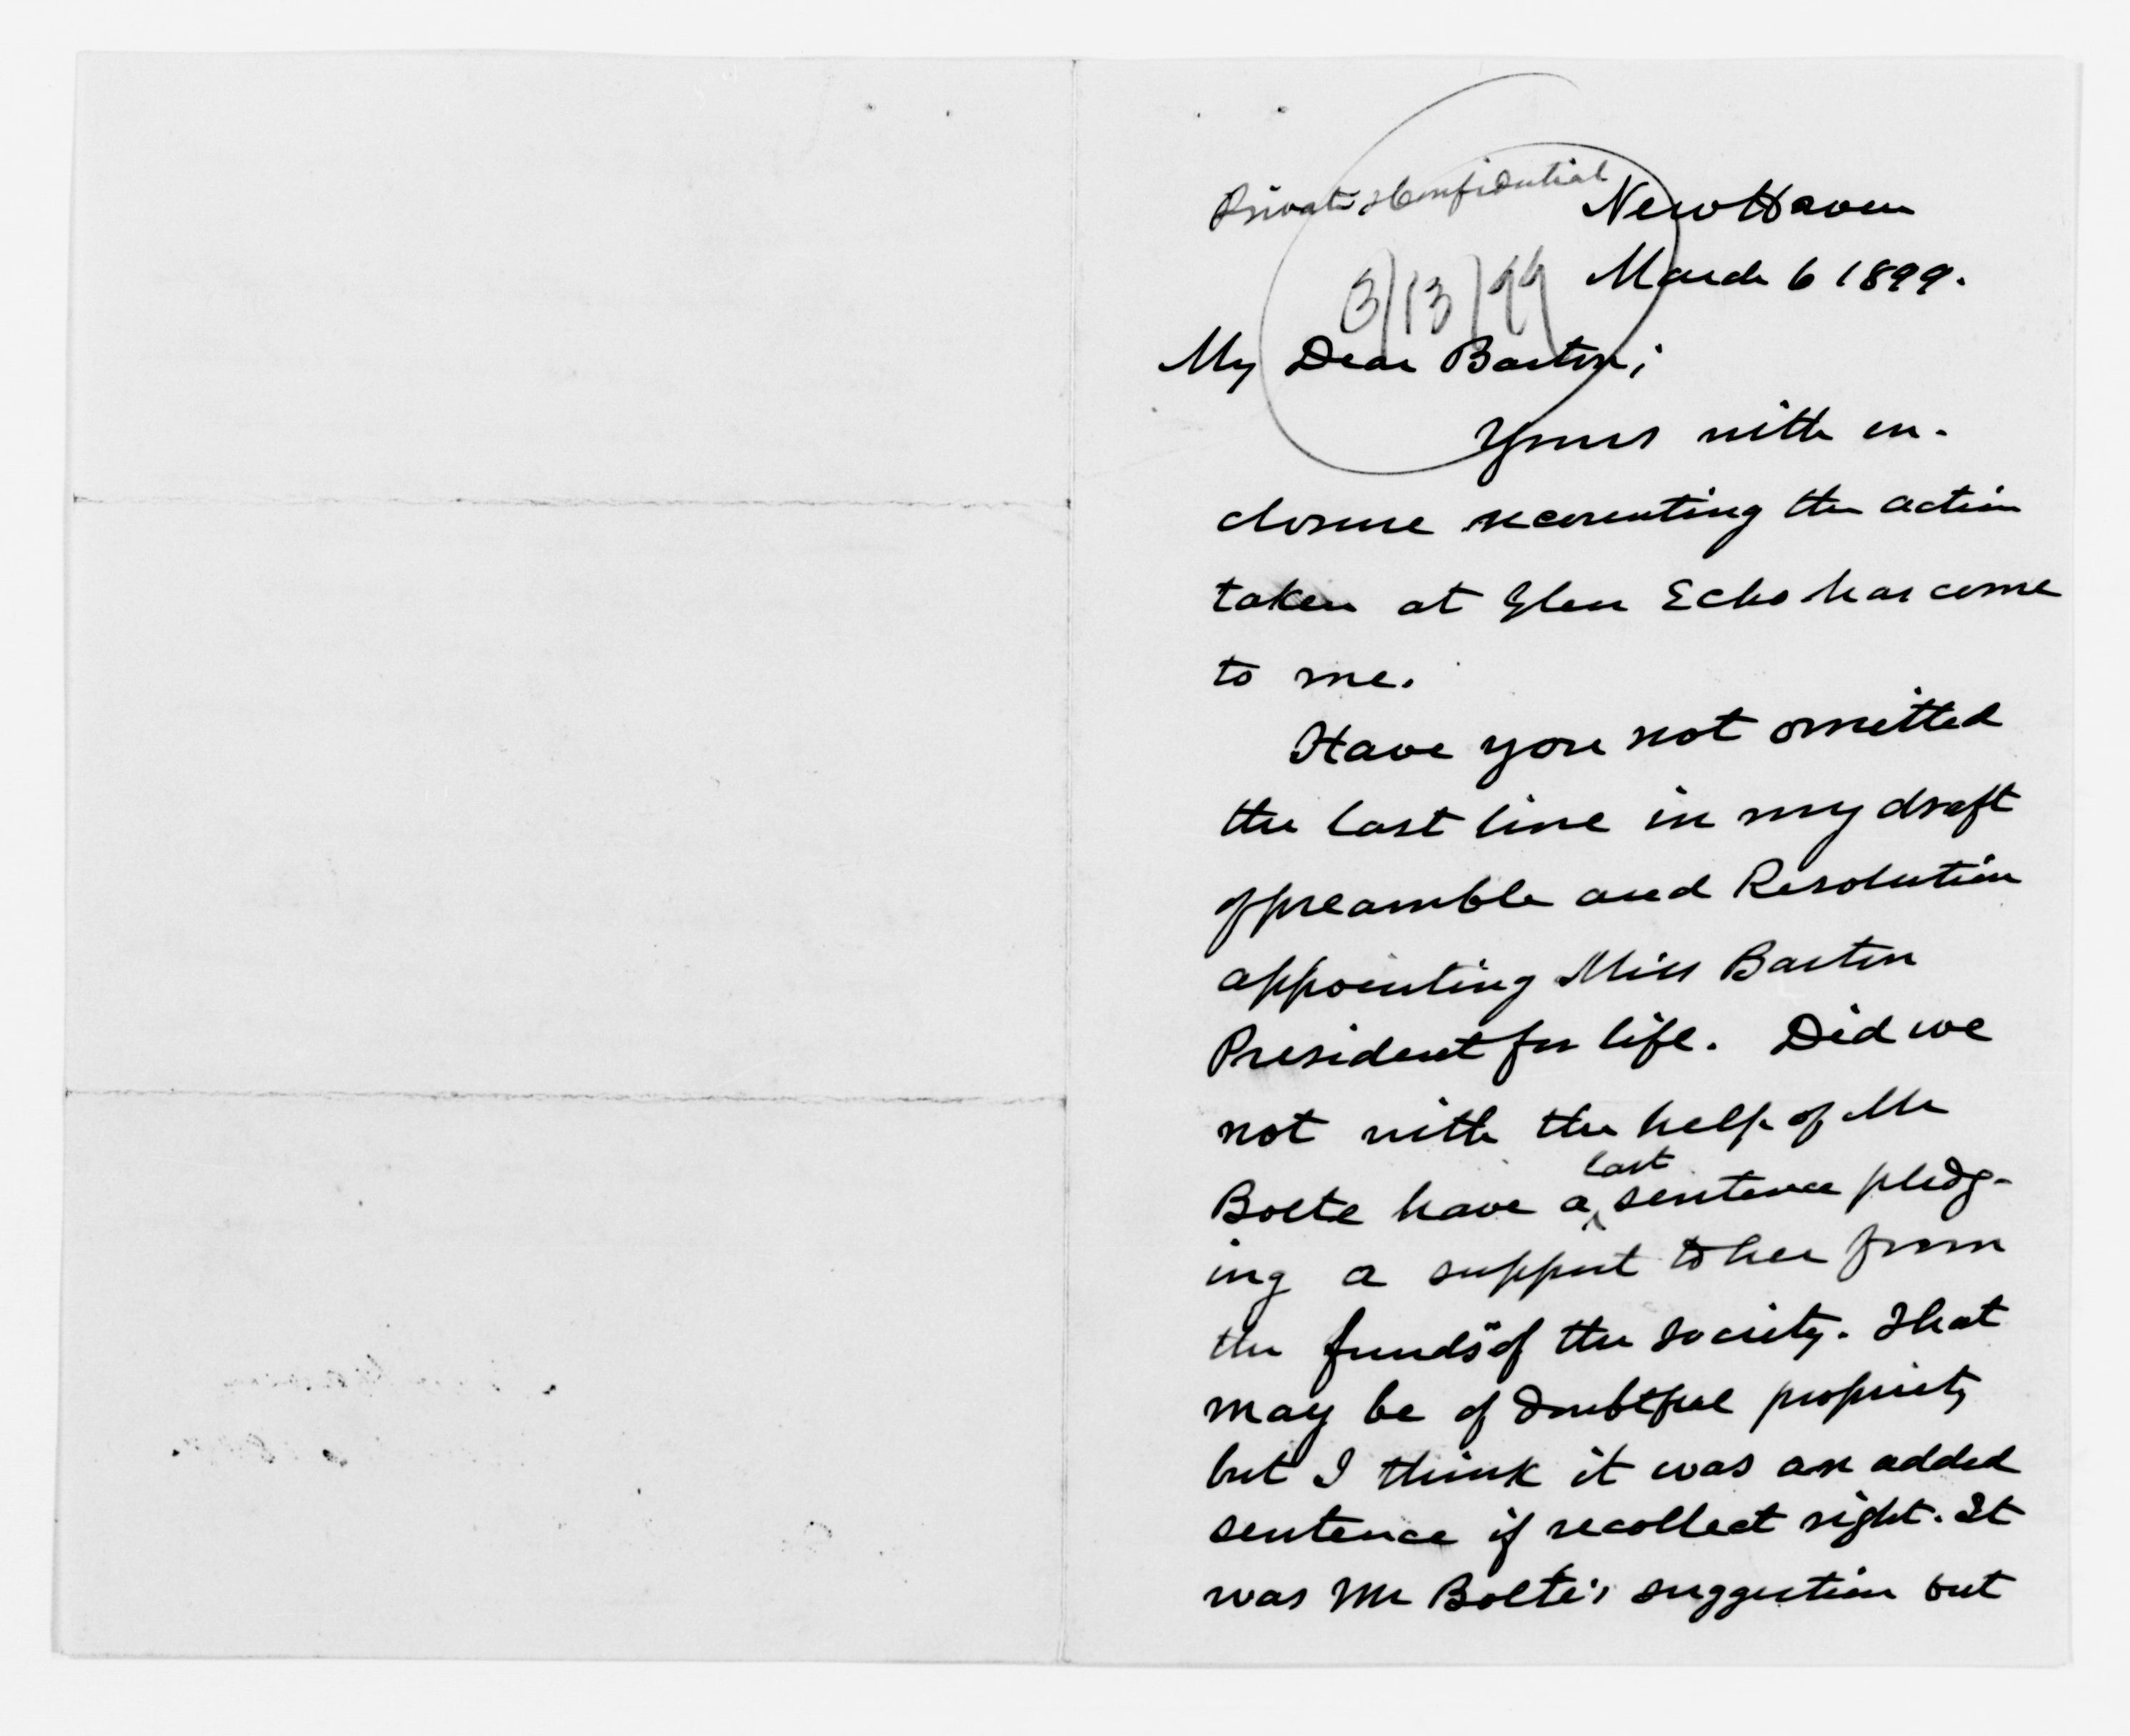 Private & Confidential
New Haven
March 6 1899.
3/13/99
My Dear Barton;
Yours with en-
closure recounting the action
taken at Glen Echo has come
to me.
Have you not omitted
the last line in my draft
of preamble and Resolution
appointing Miss Barton
President for life. Did we
not with the help of Mr
Bolte have a last sentence pledg-
ing a support to her from
the funds of the society. That
may be of doubtful propriety
but I think it was an added
sentence if recollect right. It
was Mr Bolte's suggestion but